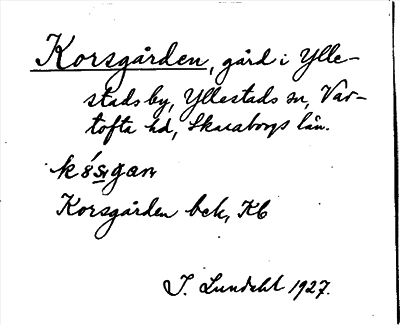 Korsgården, gård i Ylle-
stads by, Yllestads sn, Var-
tofta hd, Skaraborgs län.
Korsgården bek, Kb
I. Lundahl 1927.